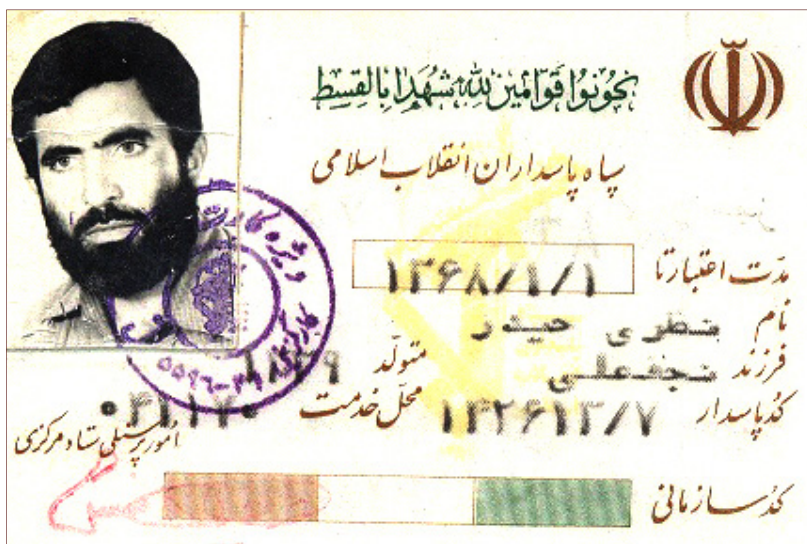 کونوا قوامین لله شهدا بالقسط
سپاه پاسداران انقلاب اسلامی
مدت اعتبار تا ۱۳۶۸/۱/۱
نام منظری حیدر
فرزند نجفعلی متولد
کد پاسدار ۱۴۲۶۱۳/۷ محل خدمت
امور پرسنلی ستاد مرکزی
کد سازمانی
ویژه کارت